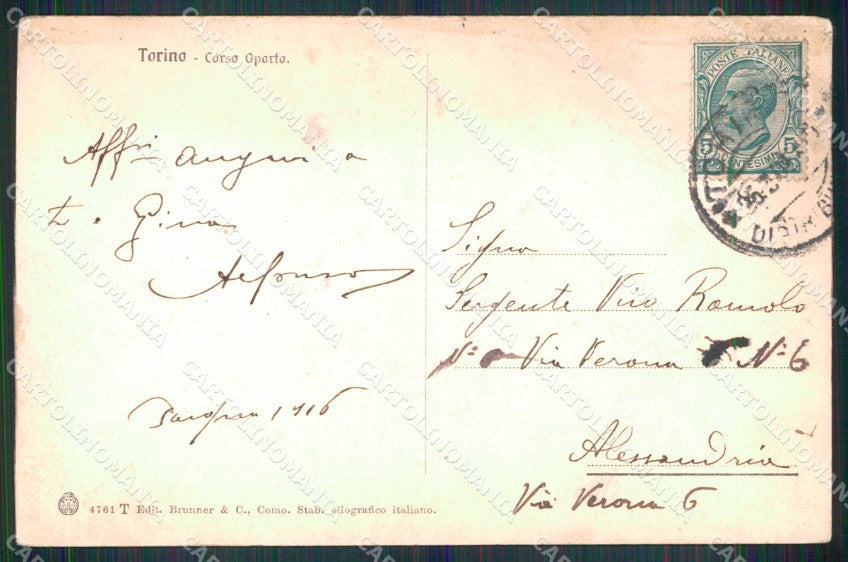 Torino - Corso Oporto.
POSTE ITALIANE
5 CENTESIMI 5
DISTRIBU
Affti auguri a
te e Gina
Alfonso
1916
Signor
Sergente Vico Romolo
No Via Verona No 6
Alessandria
Via Verona 6
4761 T Edit. Brunner & C., Como. Stab. eliografico italiano.
CARTOLINOMANIA